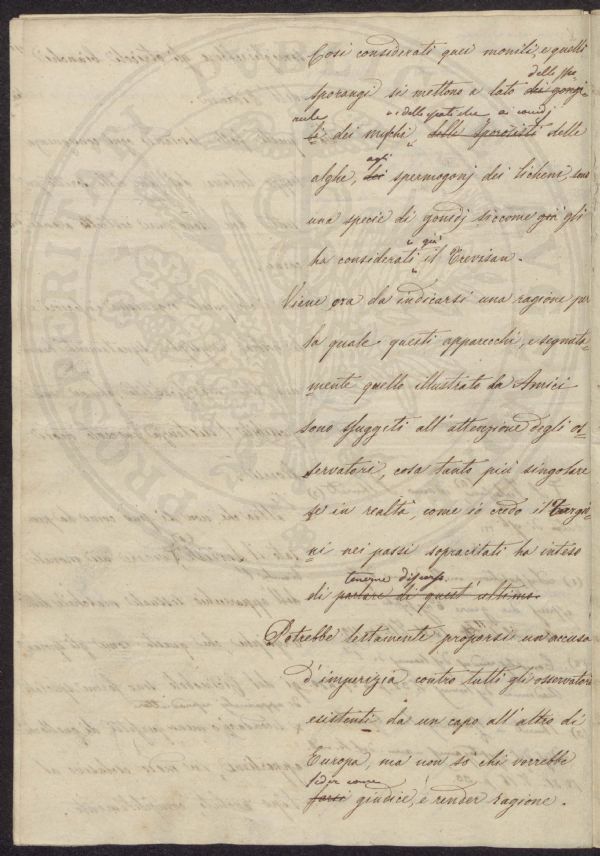 Così considerati quei monili, e quelli
delle spo-
sporangi si mettono a lato dei gongi-
rule o delle spatulae ai conidj
li dei myphi delle sporotisti delle
agli
alghe, dei spermogonj dei licheni, sono
una specie di gonidj siccome già gli
e già
ha considerati il Trevisan.
Viene ora da indicarsi una ragione per
la quale questi apparecchi, e segnata-
mente quello illustrato da Amici
sono sfuggiti all'attenzione degli os-
servatori, cosa tanto più singolare
se in realtà, come io credo il Targio-
ni nei passi sopracitati ha inteso
tenerne discorso
di parlare di quest'ultimo.
Potrebbe certamente proporsi un'accusa
d'imperizia contro tutti gli osservatori
esistenti da un capo all'altro di
Europa, ma non so chi vorrebbe
seder come
farsi giudice, e render ragione.